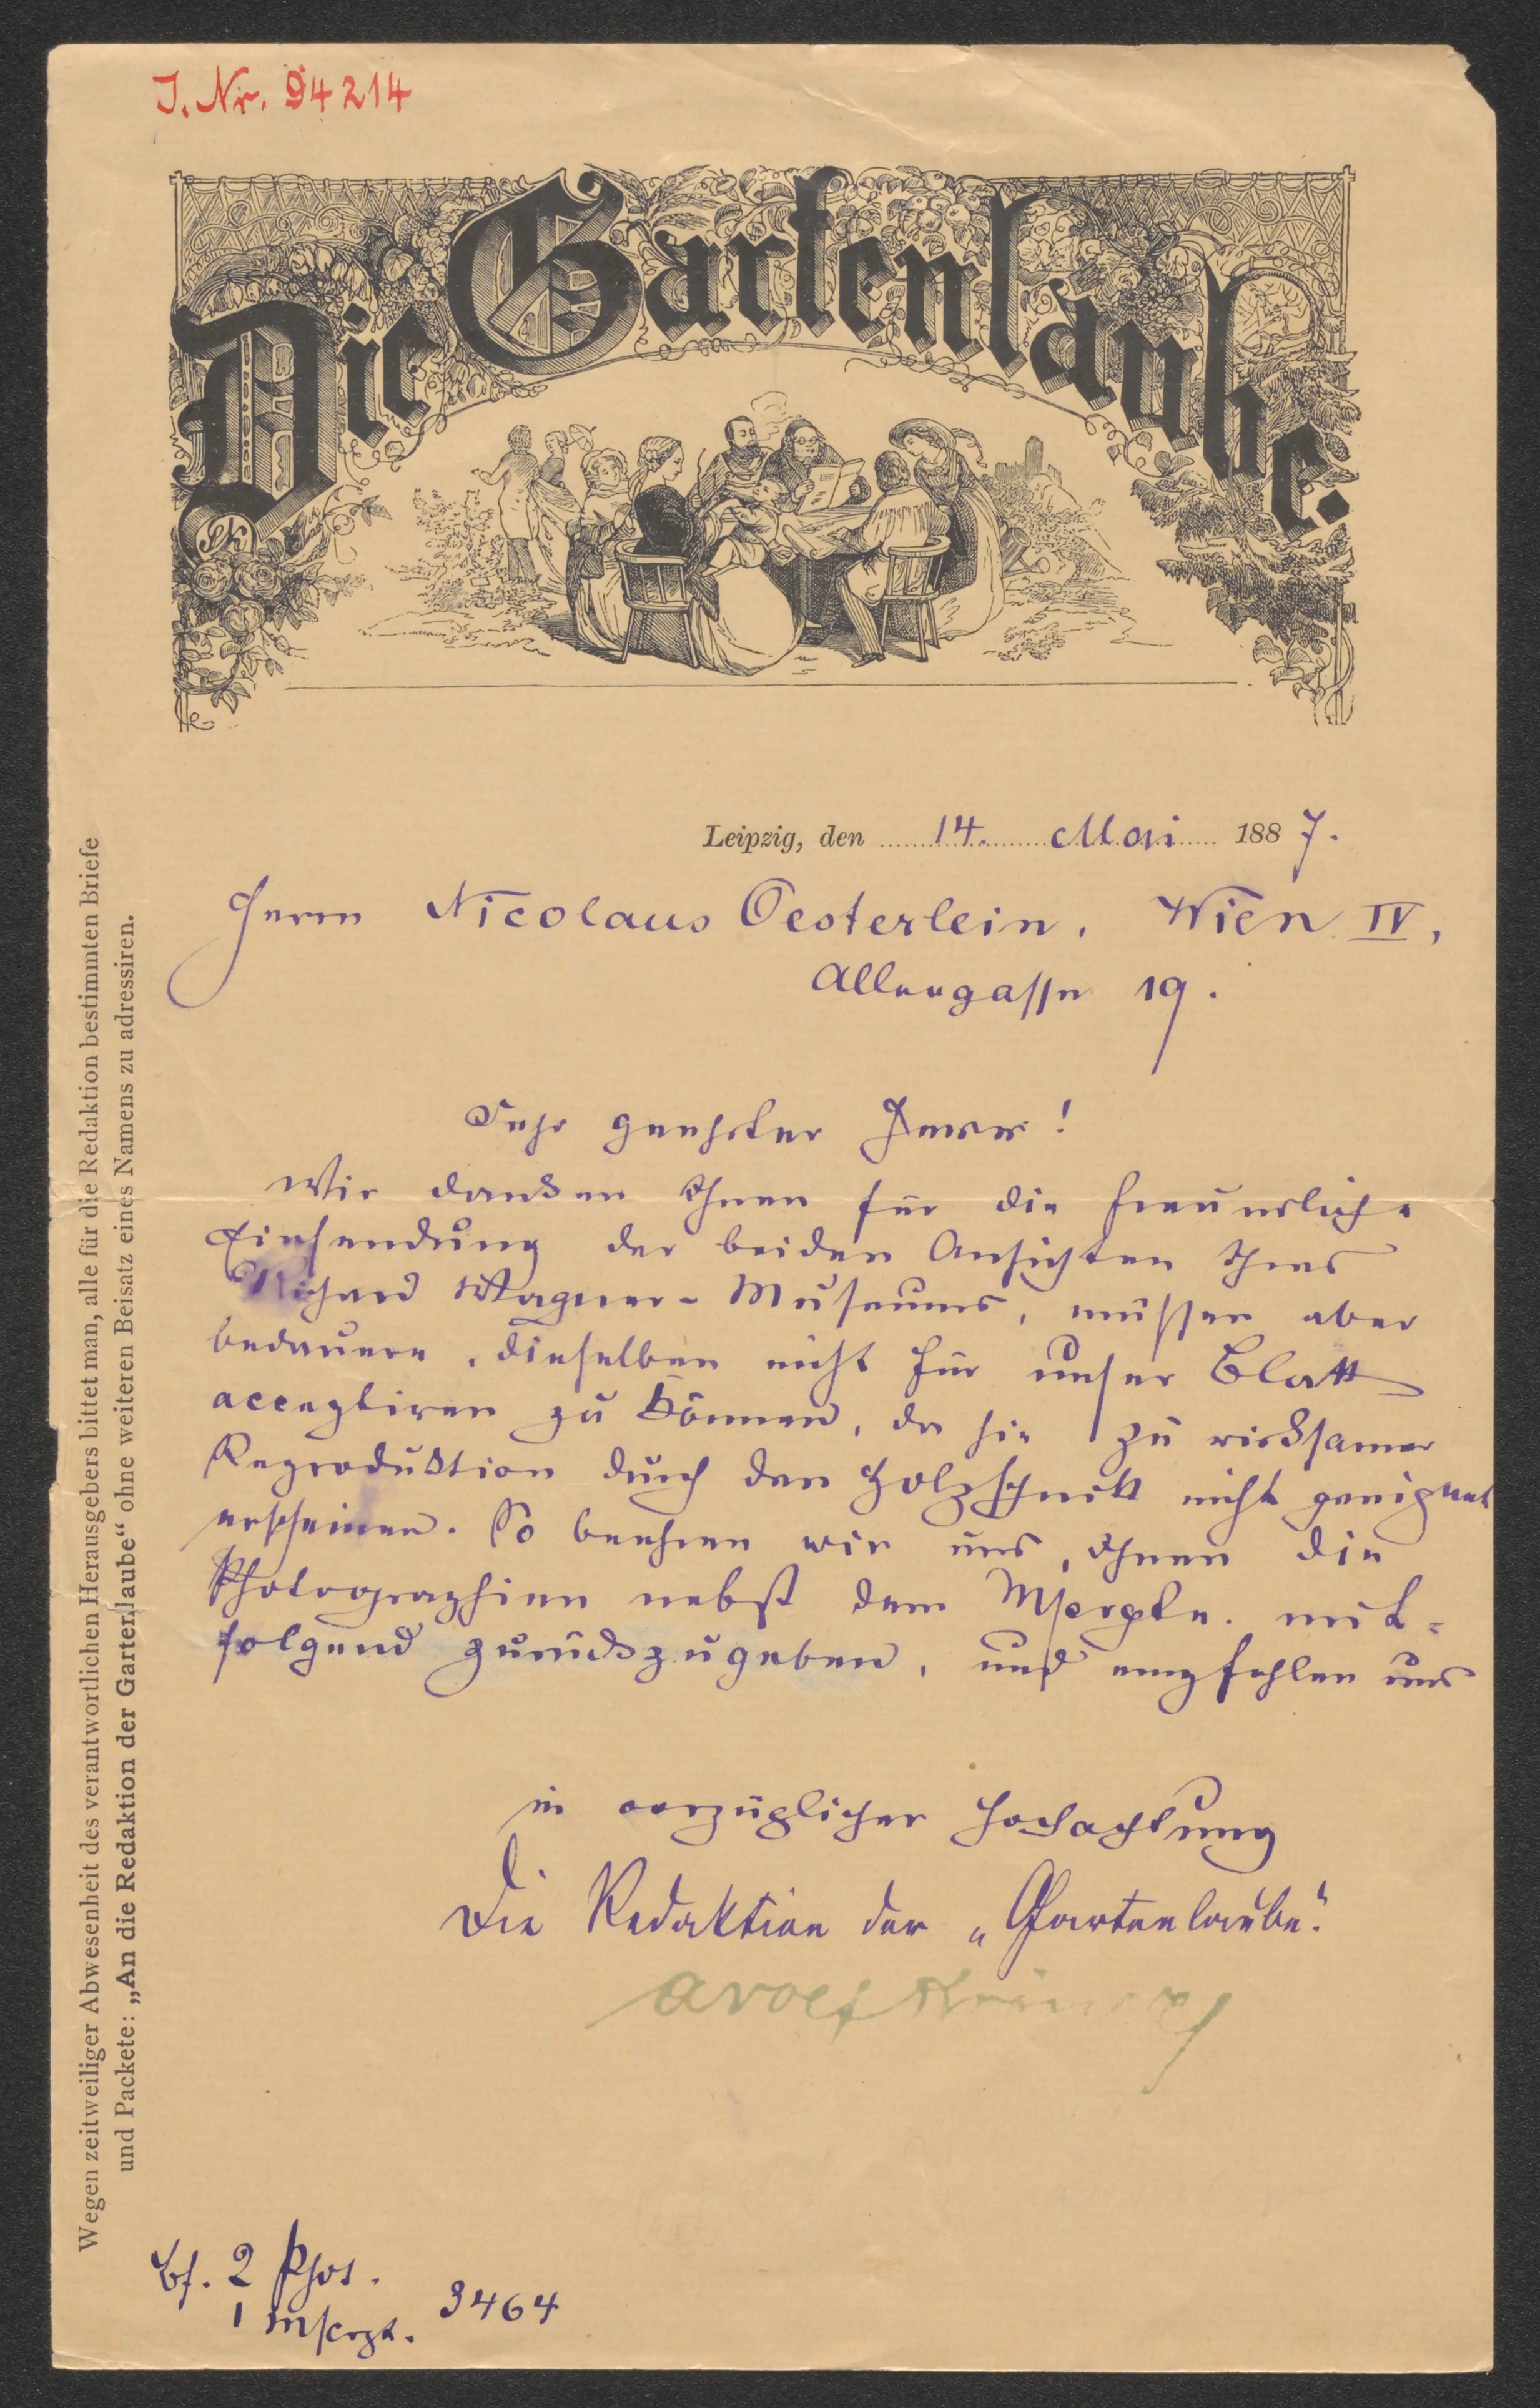 J. Nr. 94214
Die Gartenlaube.
Leipzig, den 14. Mai 1887.
Herrn Nicolaus Oesterlein. Wien IV,
Alleegasse 19.
Sehr geehrter Herr!
Wir danken Ihnen für die freundliche
Einsendung der beiden Ansichten Ihres
Richard Wagner-Museums, müssen aber
bedauern, dieselben nicht für unser Blatt
acceptiren zu können, da sie zu wirksamer
Reproduktion durch den Holzschnitt nicht geeignet
erscheinen. So beehren wir uns, Ihnen die
Photographien nebst dem Mscrpte. mit-
folgend zurückzugeben, und empfehlen uns
in vorzüglicher Hochachtung
Die Redaktion der „Gartenlaube“.
Adolf Kröner
Wegen zeitweiliger Abwesenheit des verantwortlichen Herausgebers bittet man, alle für die Redaktion bestimmten Briefe
und Packete: „An die Redaktion der Gartenlaube“ ohne weiteren Beisatz eines Namens zu adressiren.
2 Phot.
1 Mscrpt. 3464